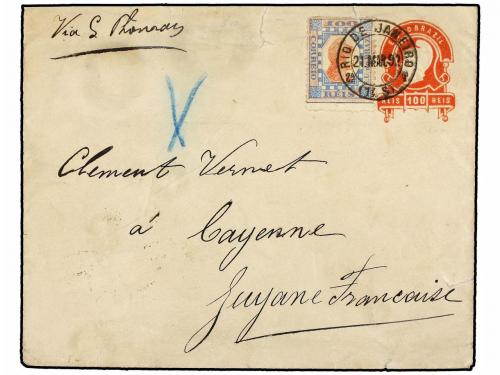 Via S. Thomas
100
CORREIO
REIS
RIO DE JANEIRO
21 MAR 92
2ª (T. S)
BRAZIL
REIS 100 REIS
X
Clement Vernet
à Cayenne
Guyane Francaise